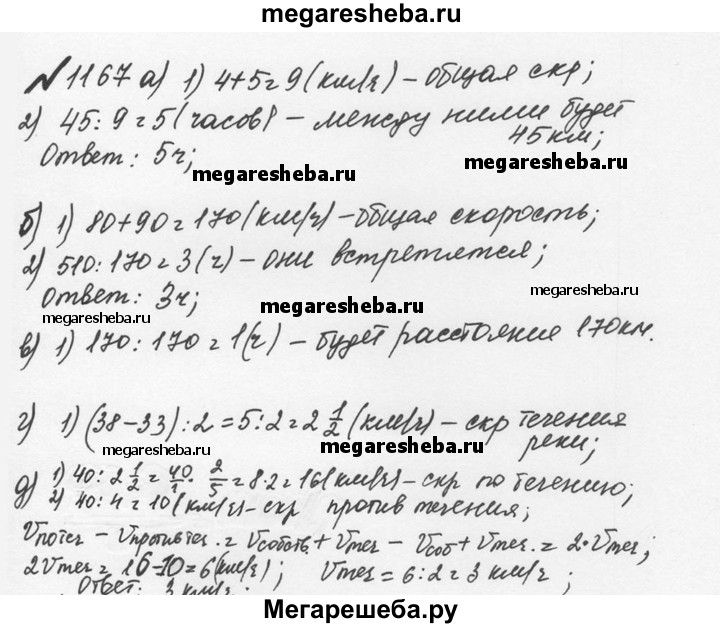 megaresheba.ru
№1167 а) 1) 4+5=9 (км/ч) – общая скр;
2) 45:9=5 (часов) – между ними будет
45 км;
Ответ: 5ч;
megaresheba.ru
megaresheba.ru
б) 1) 80+90=170 (км/ч) – общая скорость;
2) 510:170=3(ч) – они встретятся;
Ответ: 3ч;
megaresheba.ru
megaresheba.ru
megaresheba.ru
в) 1) 170:170=1(ч) – будет расстояние 170км.
г) 1) (38–33):2=5:2=2 1/2 (км/ч) – скр течения
реки;
megaresheba.ru
megaresheba.ru
д) 1) 40:2 1/2 = 40/1 · 2/5 = 8·2=16(км/ч) – скр по течению;
2) 40:4=10(км/ч) – скр против течения;
Vпотеч – Vпротивтеч. = Vсобств + Vтеч – Vсоб + Vтеч. = 2·Vтеч;
2Vтеч = 16–10=6(км/ч); Vтеч = 6:2=3 км/ч;
Ответ: 3 км/ч.
megaresheba.ru
Мегарешеба.ру